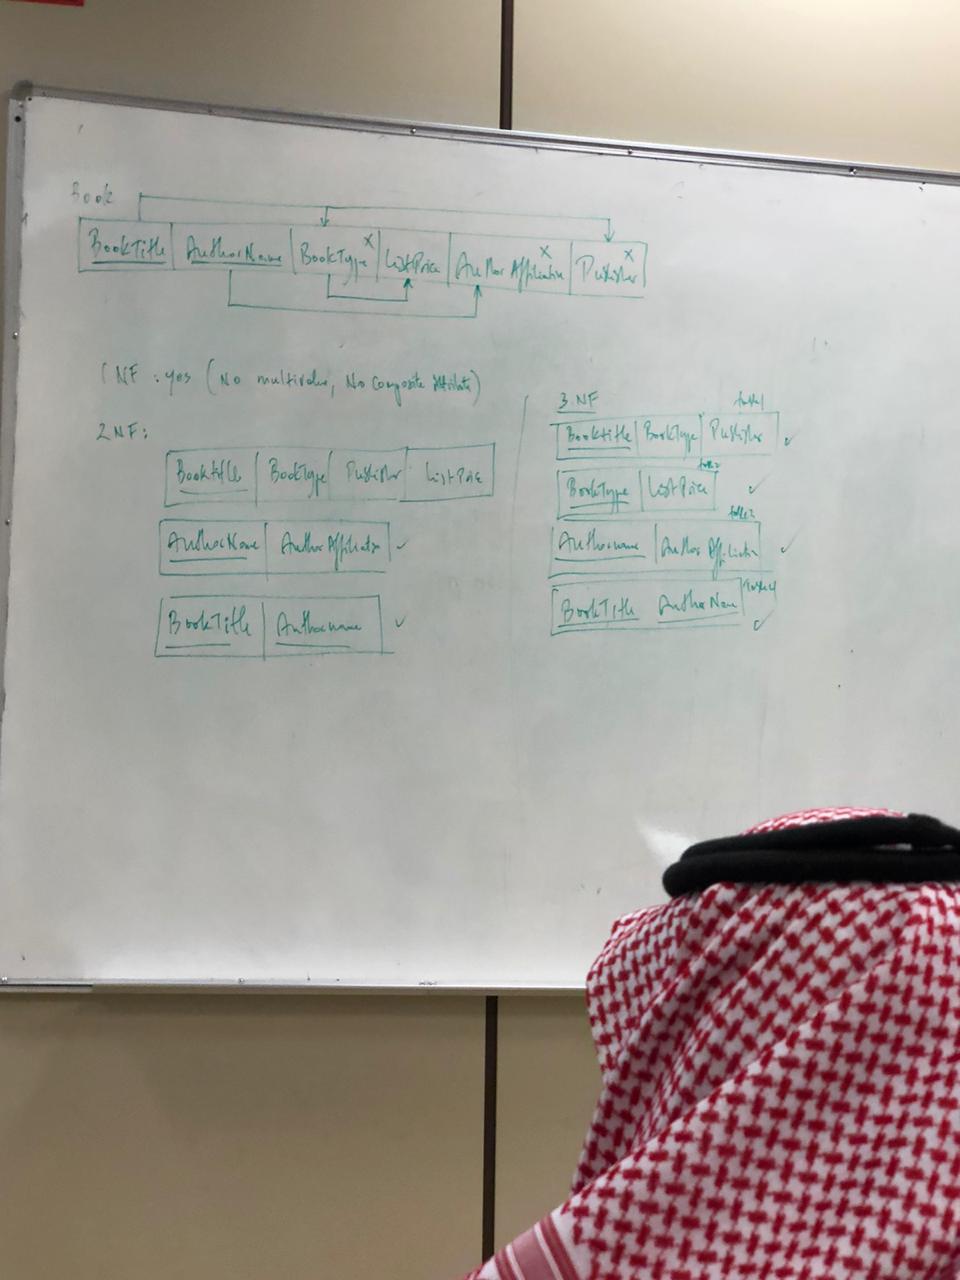 Book
BookTitle AuthorName BookType x ListPrice Author Affiliation x Publisher x
1 NF : yes (No multivalue, No composite attribute)
2 NF:
BookTitle BookType Publisher ListPrice
AuthorName Author Affiliation ✓
BookTitle Authorname ✓
3 NF
table1
BookTitle BookType Publisher ✓
table2
BookType ListPrice ✓
table3
Authorname Author Affiliation ✓
table4
BookTitle AuthorName ✓